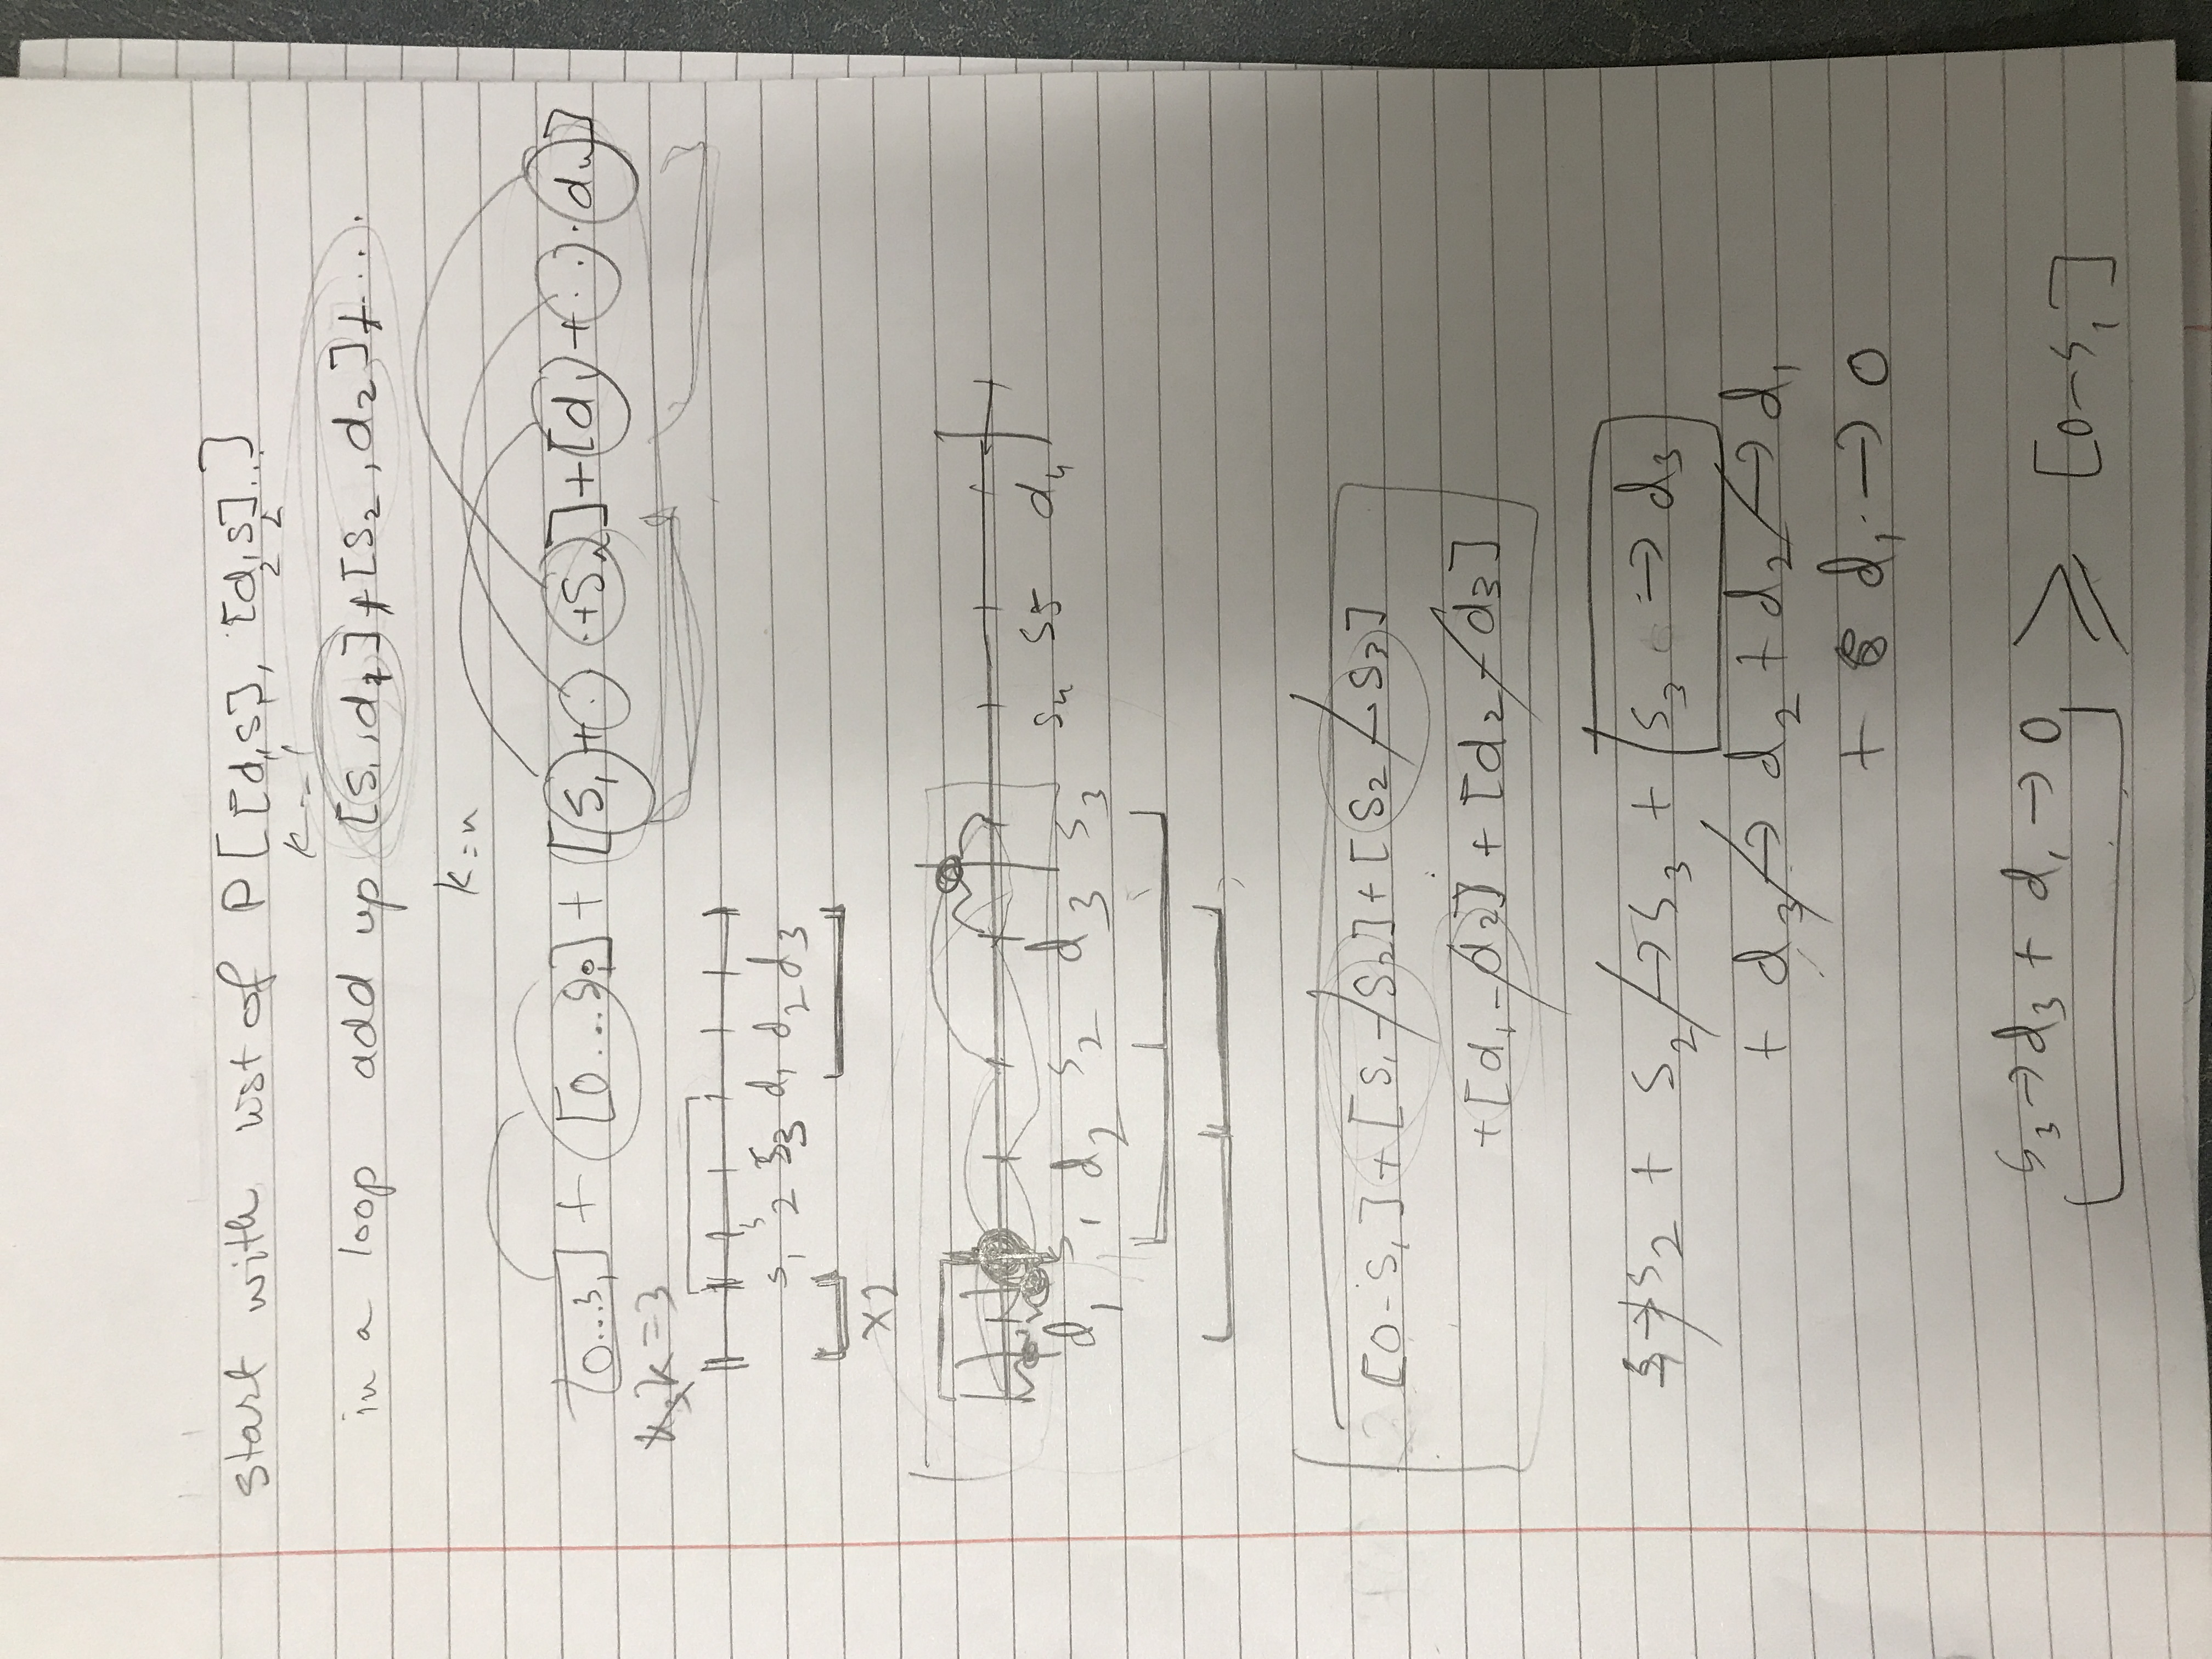 start with list of P[[d₁s₁], [d₂,s₂]...]
k=1
in a loop add up [s₁,d₁]+[s₂,d₂]+....
k=n
[0...s₁] + [0...s₁] + [s₁+..+sₙ]+[d₁+...dₙ]
k=3
s₁ s₂ s₃ d₁ d₂ d₃
x2
d₁ s₁ d₂ s₂ d₃ s₃ s₄ s₅ d₄
[0-s₁]+[s₁-s₂]+[s₂→s₃]
+[d₁-d₂]+[d₂-d₃]
s₁→s₂ + s₂→s₃ + s₃ → d₃
+ d₃→d₂+d₂→d₁
+ d₁→0
s₃→d₃+d₁→0 ≥ [0-s₁]